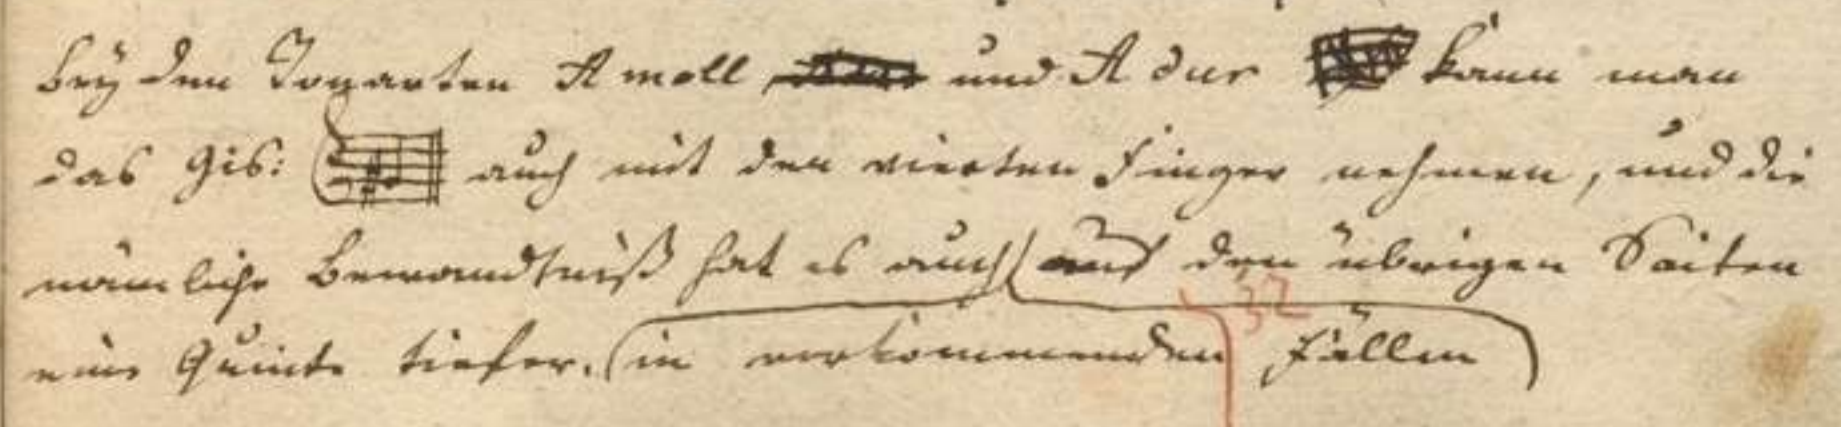 Bey den Tonarten A moll und A dur kann man
das Gis: auch mit den vierten Finger nehmen, und die
nämliche Bewandtniß hat es auch auf den übrigen Saiten
32
eine Quinte tiefer. in vorkommenden Fällen